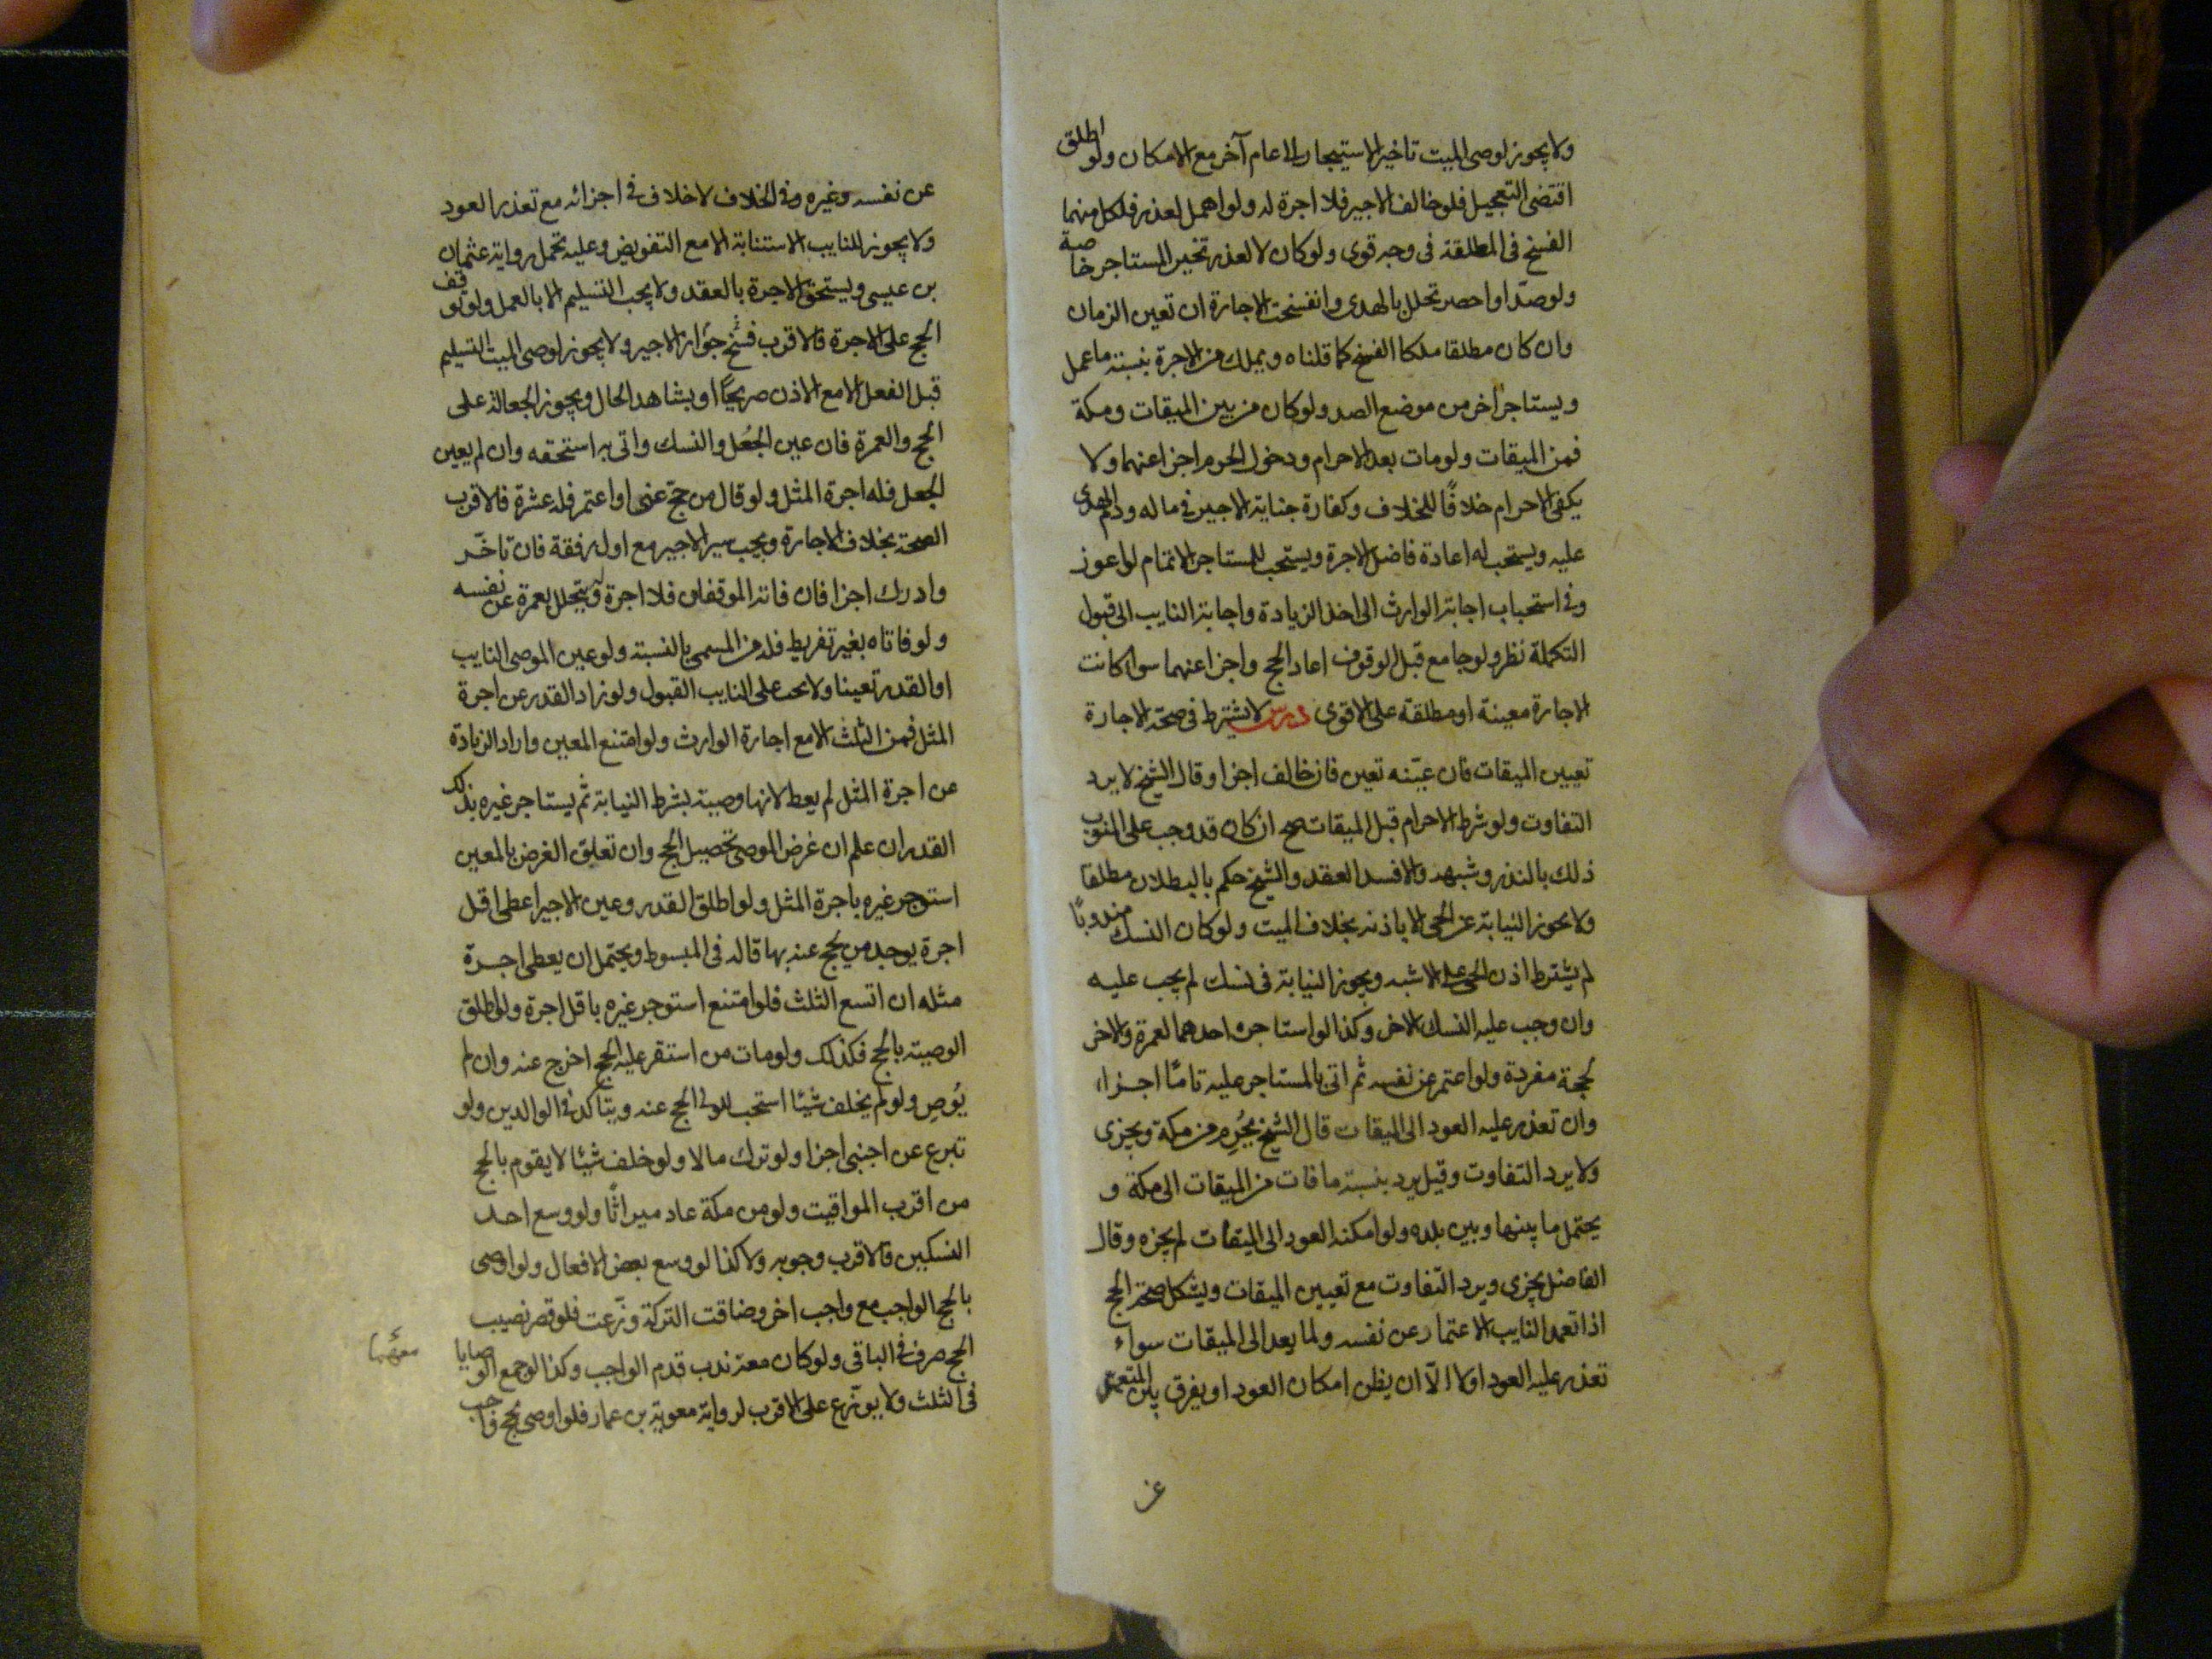 ولا يجوز لوصى الميت تاخير الاستيجار الى عام آخر مع الامكان ولو اطلق
اقتضى التعجيل فلو خالف الاجير فلا اجرة له ولو اهمل لعذر فلكل منهما
الفسخ فى المطلقة فى وجه قوى ولو كان لا لعذر تخير المستاجر خاصة
ولو صدّ او احصر تحلل بالهدى وانفسخت الاجارة ان تعين الزمان
وان كان مطلقا ملكا الفسخ كما قلناه ويملك من الاجرة بنسبة ما عمل
ويستاجر آخر من موضع الصد ولو كان من بين الميقات ومكة
فمن الميقات ولو مات بعد الاحرام ودخول الحرم اجزا عنهما ولا
يكفى الاحرام خلافًا للخلاف وكفارة جناية الاجير فى ماله ودم الهدى
عليه ويستحب له اعادة فاضل الاجرة ويستحب للمستاجر الاتمام لو اعوز
وفى استحباب اجابة الوارث الى اخذ الزيادة واجابة النايب الى قبول
التكملة نظر ولو جامع قبل الوقوف اعاد الحج واجزا عنهما سوا كانت
الاجارة معينة او مطلقة على الاقوى درس لا يشترط فى صحة الاجارة
تعيين الميقات فان عيّنه تعين فان خالف اجزا وقال الشيخ لا يرد
التفاوت ولو شرط الاحرام قبل الميقات صح ان كان قد وجب على المنوب
ذلك بالنذر وشبهه والا فسد العقد والشيخ حكم بالبطلان مطلقا
ولا يجوز النيابة عن الحى الا باذنه بخلاف الميت ولو كان النسك مندوبًا
لم يشترط اذن الحى على الاشبه ويجوز النيابة فى نسك لم يجب عليه
وان وجب عليه النسك الاخر وكذا لو استاجره احدهما لعمرة والاخر
لحجة مفردة ولو اعتمر عن نفسه ثم اتى بالمستاجر عليه تامًا اجزا
وان تعذر عليه العود الى الميقات قال الشيخ يحُرِم من مكة ويجزى
ولا يرد التفاوت وقيل يرد بنسبة ما فات من الميقات الى مكة و
يحتمل ما بينها وبين بلده ولو امكنه العود الى الميقات لم يجزه وقال
الفاضل يجزى ويرد التفاوت مع تعيين الميقات ويشكل صحة الحج
اذا تعمد النايب الاعتمار عن نفسه ولما يعد الى الميقات سواء
تعذر عليه العود او لا الّا ان يظن امكان العود او يفرق بين المعتمر
عن
عن نفسه وغيره وفى الخلاف لا خلاف فى اجزائه مع تعذر العود
ولا يجوز للنايب الاستنابة الا مع التفويض وعليه تحمل رواية عثمان
بن عيسى ويستحق الاجرة بالعقد ولا يجب التسليم الا بالعمل ولو توقف
الحج على الاجرة فالاقرب جواز فسخ الاجير ولا يجوز لوصى الميت التسليم
قبل الفعل الا مع الاذن صريحًا او بشاهد الحال ويجوز الجعالة على
الحج والعمرة فان عين الجُعل والنسك واتى به استحقه وان لم يعين
الجعل فله اجرة المثل ولو قال من حج عنى او اعتمر فله عشرة فالاقرب
الصحة بخلاف الاجارة ويجب سير الاجير مع اول رفقة فان تاخّر
وادرك اجزا فان فاته الموقفان فلا اجرة له ويتحلل بعمرة عن نفسه
ولو فاتاه بغير تفريط فله من المسمى بالنسبة ولو عين الموصى النايب
او القدر تعينا ولا يجب على النايب القبول ولو زاد القدر عن اجرة
المثل فمن الثلث الا مع اجازة الوارث ولو امتنع المعين واراد الزيادة
عن اجرة المثل لم يعط لانها وصية بشرط النيابة ثم يستاجر غيره بذلك
القدر ان علم ان غرض الموصى تحصيل الحج وان تعلق الغرض بالمعين
استوجر غيره باجرة المثل ولو اطلق القدر وعين الاجير اعطى اقل
اجرة يوجد من يحج عنه بها قاله فى المبسوط ويحتمل ان يعطى اجرة
مثله ان اتسع الثلث فلو امتنع استوجر غيره باقل اجرة ولو اطلق
الوصية بالحج فكذلك ولو مات من استقر عليه الحج اخرج عنه وان لم
يُوصِ ولو لم يخلف شيئا استحب للولى الحج عنه ويتاكد فى الوالدين ولو
تبرع عن اجنبى اجزا ولو ترك مالا ولو خلف شيئا لا يقوم بالحج
من اقرب المواقيت ولو من مكة عاد ميراثًا ولو وسع احد
النسكين فالاقرب وجوبه ولا كذا لو وسع بعض الافعال ولو اوصى
بالحج الواجب مع واجب اخر وضاقت التركة وزّعت فلو قصر نصيب
الحج صرف فى الباقى ولو كان معه ندب قدم الواجب وكذا لو جمع الوصايا
فى الثلث ولا يوزّع على الاقرب لرواية معوية بن عمار فلو اوصى بحج واجب